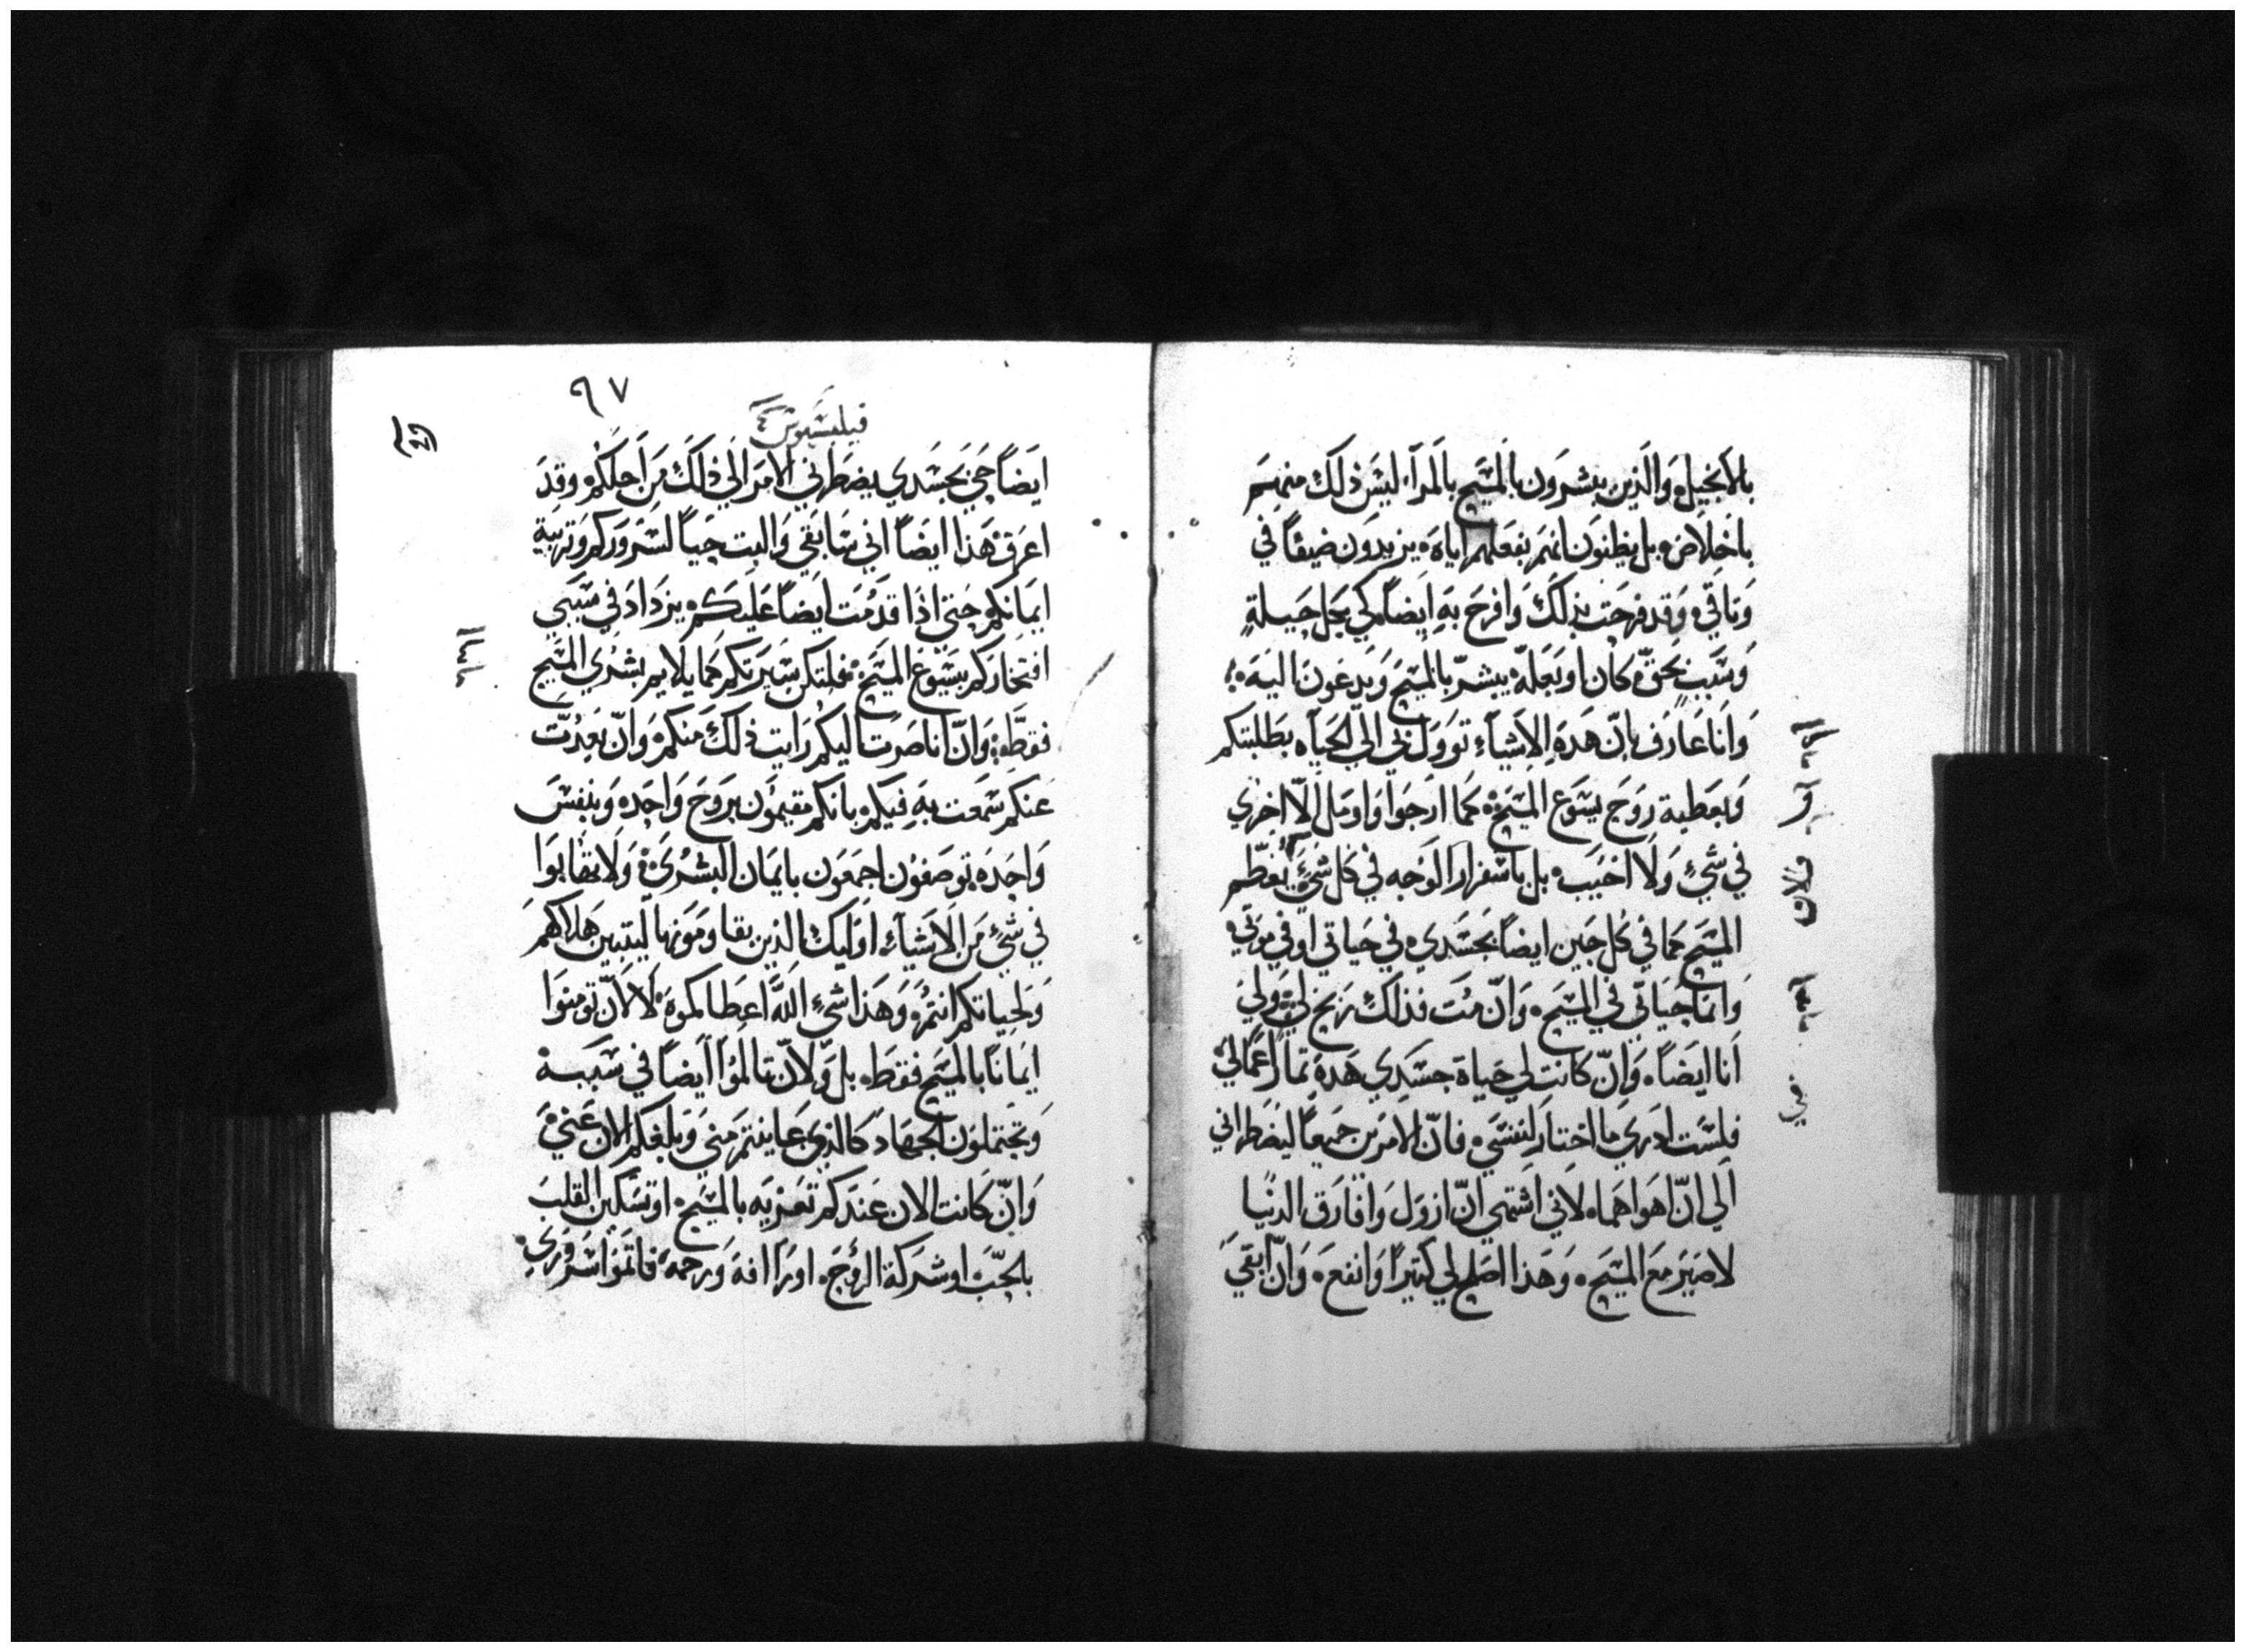 بالانجيل والذين يبشرون بالمسيح بالمرآء ليس ذلك منهم
باخلاص بل يظنون انهم بفعلهم اياه يزيدون ضيقاً في
وثاقي وقد فرحت بذلك وافرح به ايضاً كي بكل حيلةٍ
وسببٍ بحقّ كان او بعلّه يبشرّ بالمسيح ويدعون اليه
وانا عارف بانّ هذه الاشياء توول بي الي الحياه بطلبتكم
وبعطية روح يسوع المسيح كما ارجوا واومل الّا اخزي
في شيٍ ولا اخيب بل باسفرار الوجه في كل شيٍ يعظّم
المسيح كما في كل حين ايضاً بجسدي في حياتي او في موتي
وانما حياتي في المسيح وانّ مت فذلك ربح لي ولي
انا ايضاً وانّ كانت لي حياة جسدي هذه ثمار اعمالي
فلست ادري ما اختار لنفسي فانّ الامرين جميعاً ليضطراني
الي انّ اهواهما لاني اشتهي انّ ازول وافارق الدنيا
لاصير مع المسيح وهذا اصلح لي كثيراً وانفع وانّ ابقي
٩٧
فيلبسيوس
ايضاً حي بجسدي يضطرني الامر الي ذلك من اجلكم وقد
اعرف هذا ايضاً اني سابقي والبث حياً لسروركم وتربية
ايمانكم حتي اذا قدمت ايضاً عليكم يزداد في سببي
افتخاركم بيسوع المسيح فلتكن سيرتكم كما يلايم بشري المسيح
فقط وانّ انا صرت اليكم رايت ذلك منكم وانّ بعدت
عنكم سمعت به فيكم بانكم مقيمون بروح واحده وبنفس
واحده توصفون اجمعون بايمان البشري ولا تهابوا
في شيٍ من الاشياء اوليك الذين يقاومونها ليتبين هلاكهم
ولحياتكم انتم وهذا شيٍ اللّه اعطاكموه لا لانّ تومنوا
ايماناً بالمسيح فقط بل ولانّ تالموا ايضاً في سببه
وتحتملون الجهاد كالذي عاينتم مني وبلغكم الان عني
وانّ كانت الان عندكم تعزيه بالمسيح او تسكين القلب
بالحبّ او شركة الروح او رافة ورحمة فاتموا سروري